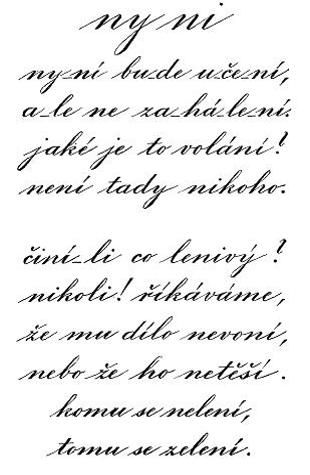 ny ni
ny-ní bu-de u-če-ní,
a-le ne za-há-le-ní.
jaké je to volání?
není tady nikoho.
činí-li co lenivý?
nikoli! říkáváme,
že mu dílo nevoní,
nebo že ho netěší.
komu se nelení,
tomu se zelení.